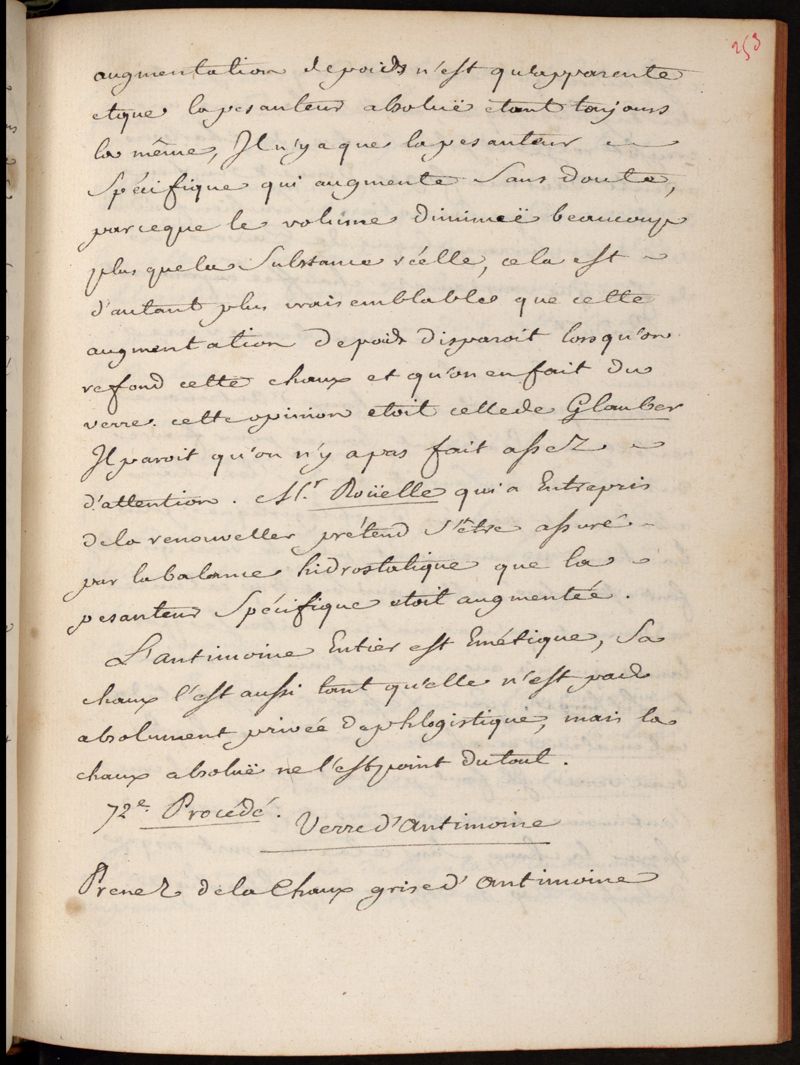 253
augmentation de poids n'est qu'apparente
et que la pesanteur absoluë etant toujours
la même, Il n'y a que la pesanteur
Spécifique qui augmente Sans doute,
parceque le volume diminuë beaucoup
plus que la Substance réelle, cela est
d'autant plus vraisemblable que cette
augmentation de poids disparoit lorsqu'on
refond cette chaux et qu'on en fait du
verre. cette opinion etoit celle de Glauber
Il paroit qu'on n'y a pas fait assez
d'attention. Mr. Roüelle qui a Entrepris
de la renouveller prétend s'être assuré
par la balance hidrostatique que la
pesanteur Spécifique etoit augmentée.
L'antimoine Entier est Emétique, Sa
chaux l'est aussi tant qu'elle n'est pas
absolument privée de phlogistique, mais la
chaux absoluë ne l'est point du tout.
72e. Procédé.
Verre d'antimoine
Prenez de la Chaux grise d'antimoine